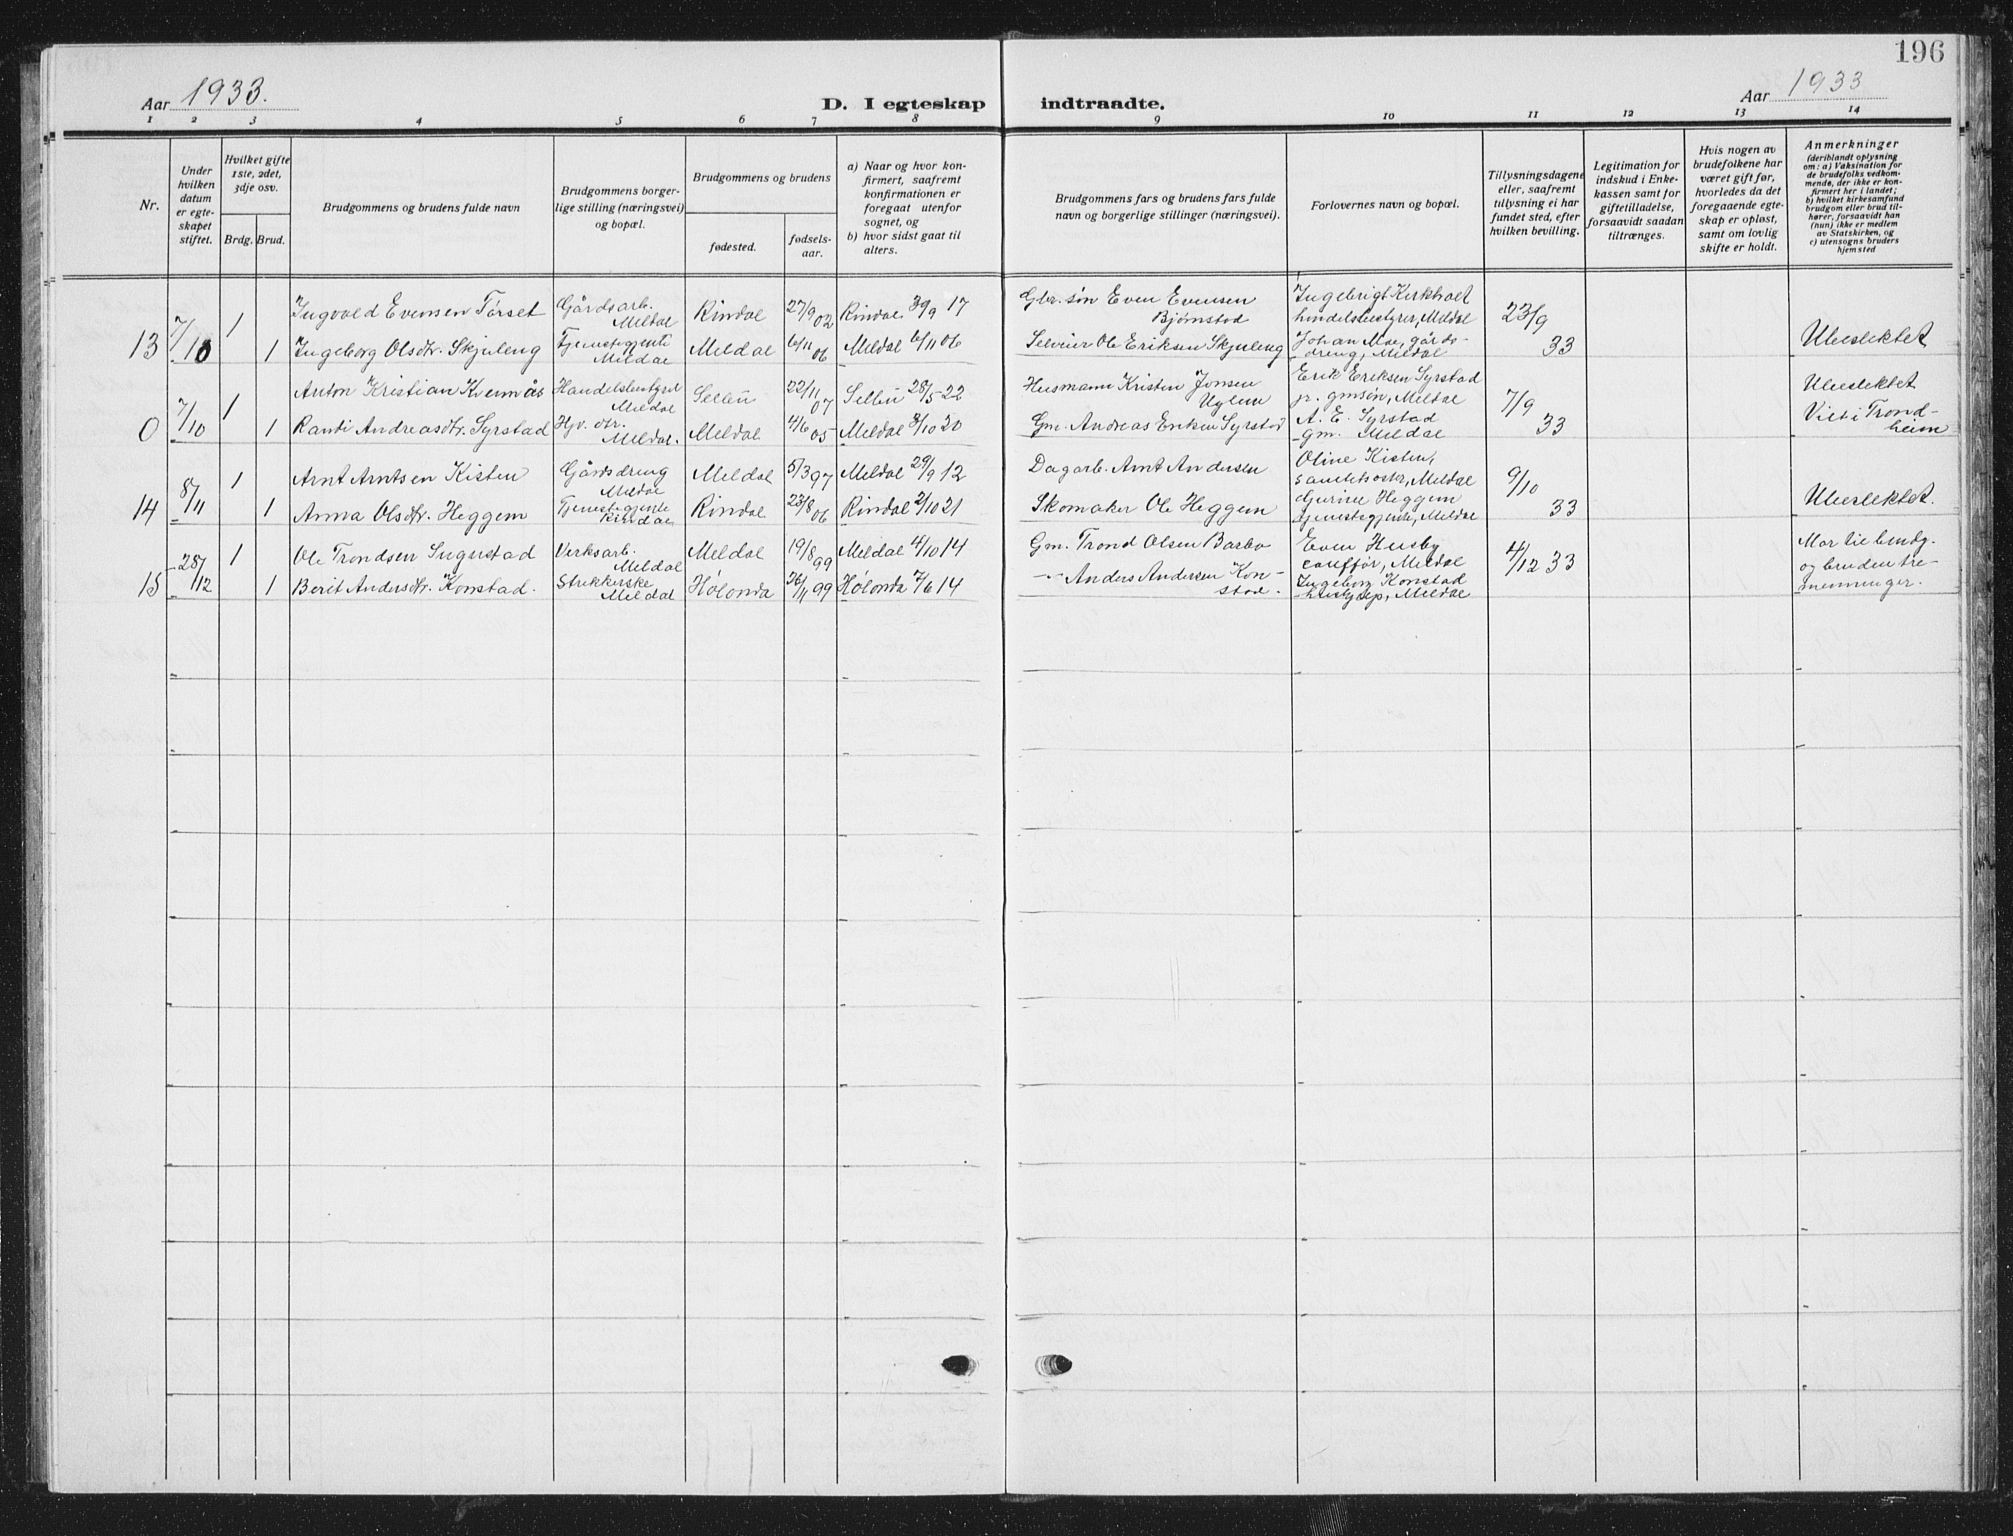 196
Aar 1933.
D. I egteskap indtraadte.
Aar 1933
1 2 3 4 5 6 7 8 9 10 11 12 13 14
Nr.
Under hvilken datum er egte- skapet stiftet.
Hvilket gifte 1ste, 2det, 3dje osv.
Brdg. Brud.
Brudgommens og brudens fulde navn
Brudgommens borger- lige stilling (næringsvei) og bopæl.
Brudgommens og brudens
fødested.
fødsels- aar.
a) Naar og hvor kon- firmert, saafremt konfirmationen er foregaat utenfor sognet, og
b) hvor sidst gaat til alters.
Brudgommens fars og brudens fars fulde navn og borgerlige stillinger (næringsvei).
Forlovernes navn og bopæl.
Tillysningsdagene eller, saafremt tillysning ei har fundet sted, efter hvilken bevilling.
Legitimation for indskud i Enke- kassen samt for giftetilladelse, forsaavidt saadan tiltrænges.
Hvis nogen av brudefolkene har været gift før, hvorledes da det foregaaende egte- skap er opløst, samt om lovlig skifte er holdt.
Anmerkninger
(deriblandt oplysning om: a) Vaksination for de brudefolks vedkom- mende, der ikke er kon- firmert her i landet; b) hvilket kirkesamfund brudgom eller brud til- hører, forsaavidt han (hun) ikke er medlem av Statskirken, og c) utensogns bruders hjemsted
13 7/10 1 Ingvald Evensen Tørset Gårdsarb. Meldal Rindal 27/9 02 Rindal 9 17 Gbr. søn Even Evensen Bjørnstad Ingebrigt Kirkholt handelsbestyrer, Meldal 23/9 33
1 Ingeborg Olsdtr. Skjuleng Tjenestegjente Meldal Meldal 6/11 06 Meldal 6/11 06 Selveier Ole Eriksen Skjuleng Johan Moe, gårds- dreng, Meldal Ubeslektet
0 7/10 1 Anton Kristian Kvernås Handelsbestyrer Meldal Selbu 22/11 07 Selbu 28/5 22 Husmann Kristen Jonsen Uglem Erik Eriksen Syrstad jr. gmsøn, Meldal 7/9 33 Ubeslektet
1 Randi Andreasdtr. Syrstad Hjv. dtr. Meldal. Meldal 4/6 05 Meldal 3/10 20 Gm. Andreas Eriksen Syrstad A. E. Syrstad gm. Meldal Viet i Trond- heim
14 8/11 1 Arnt Arntsen Kisten Gårdsdreng Meldal Meldal 5/3 97 Meldal 29/9 12 Dagarb. Arnt Andersen Oline Kisten, Meldal 9/10 33
1 Anna Olsdtr. Heggem Tjenestegjente Rindal Rindal 23/8 06 Rindal 2/10 21 Skomaker Ole Heggem Gurine Heggem tjenestegjente, Meldal Ubeslektet.
15 28/12 1 Ole Trondsen Sugustad Verksarb. Meldal Meldal 19/8 99 Meldal 4/10 14 Gm. Trond Olsen Barbo Even Husby chauffør, Meldal 4/12 33 Mor til brudg. og bruden tre- menninger.
1 Berit Andersdtr. Konstad. Strikkerske Meldal Hølonda 26/11 99 Hølonda 7/6 14 -"- Anders Andersen Kon- stad. Ingeborg Konstad Meldal